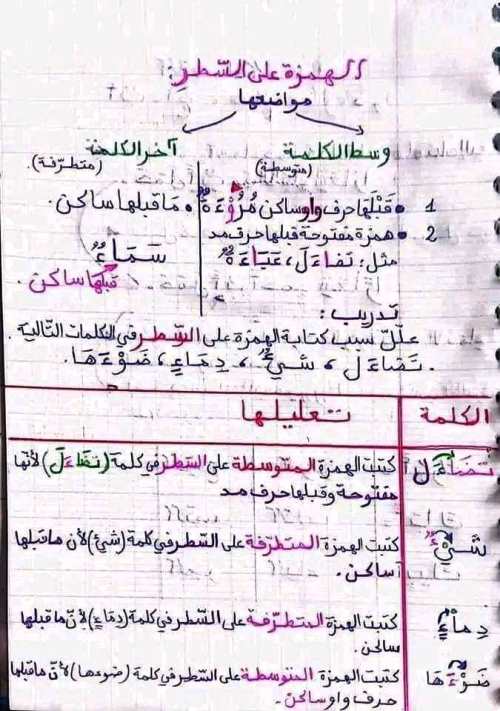 الهمزة على السّطر:
مواضعها
وسط الكلمة
آخر الكلمة
(متوسطة)
(متطرّفة)
1 • قَبْلَهَا حرف واو ساكن مُرُوْءَةٌ
• مَا قبلها ساكن.
2 • همزة مفتوحة قبلها حرف مد
مثل: تَفَاءَلَ، عَبَاءَةٌ
سَمَاءٌ
قبلها ساكن.
تدريب:
علّل سبب كتابة الهمزة على السّطر في الكلمات التالية
تَضَاءَلَ، شَيْءٌ، دِمَاءٍ، ضَوْءَهَا.
الكلمة
تعليلها
تَضَاءَلَ
كتبت الهمزة المتوسطة على السّطر في كلمة (تضاءَلَ) لأنّها
مفتوحة وقبلها حرف مد
شَيْءٌ
كتبت الهمزة المتطرّفة على السّطر في كلمة (شيءٌ) لأن ما قبلها
ساكن.
دِمَاءٍ
كتبت الهمزة المتطرّفة على السّطر في كلمة (دِمَاءٍ) لأنّ ما قبلها
ساكن.
ضَوْءَهَا
كتبت الهمزة المتوسطة على السّطر في كلمة (ضوءها) لأنّ ما قبلها
حرف واو ساكن.